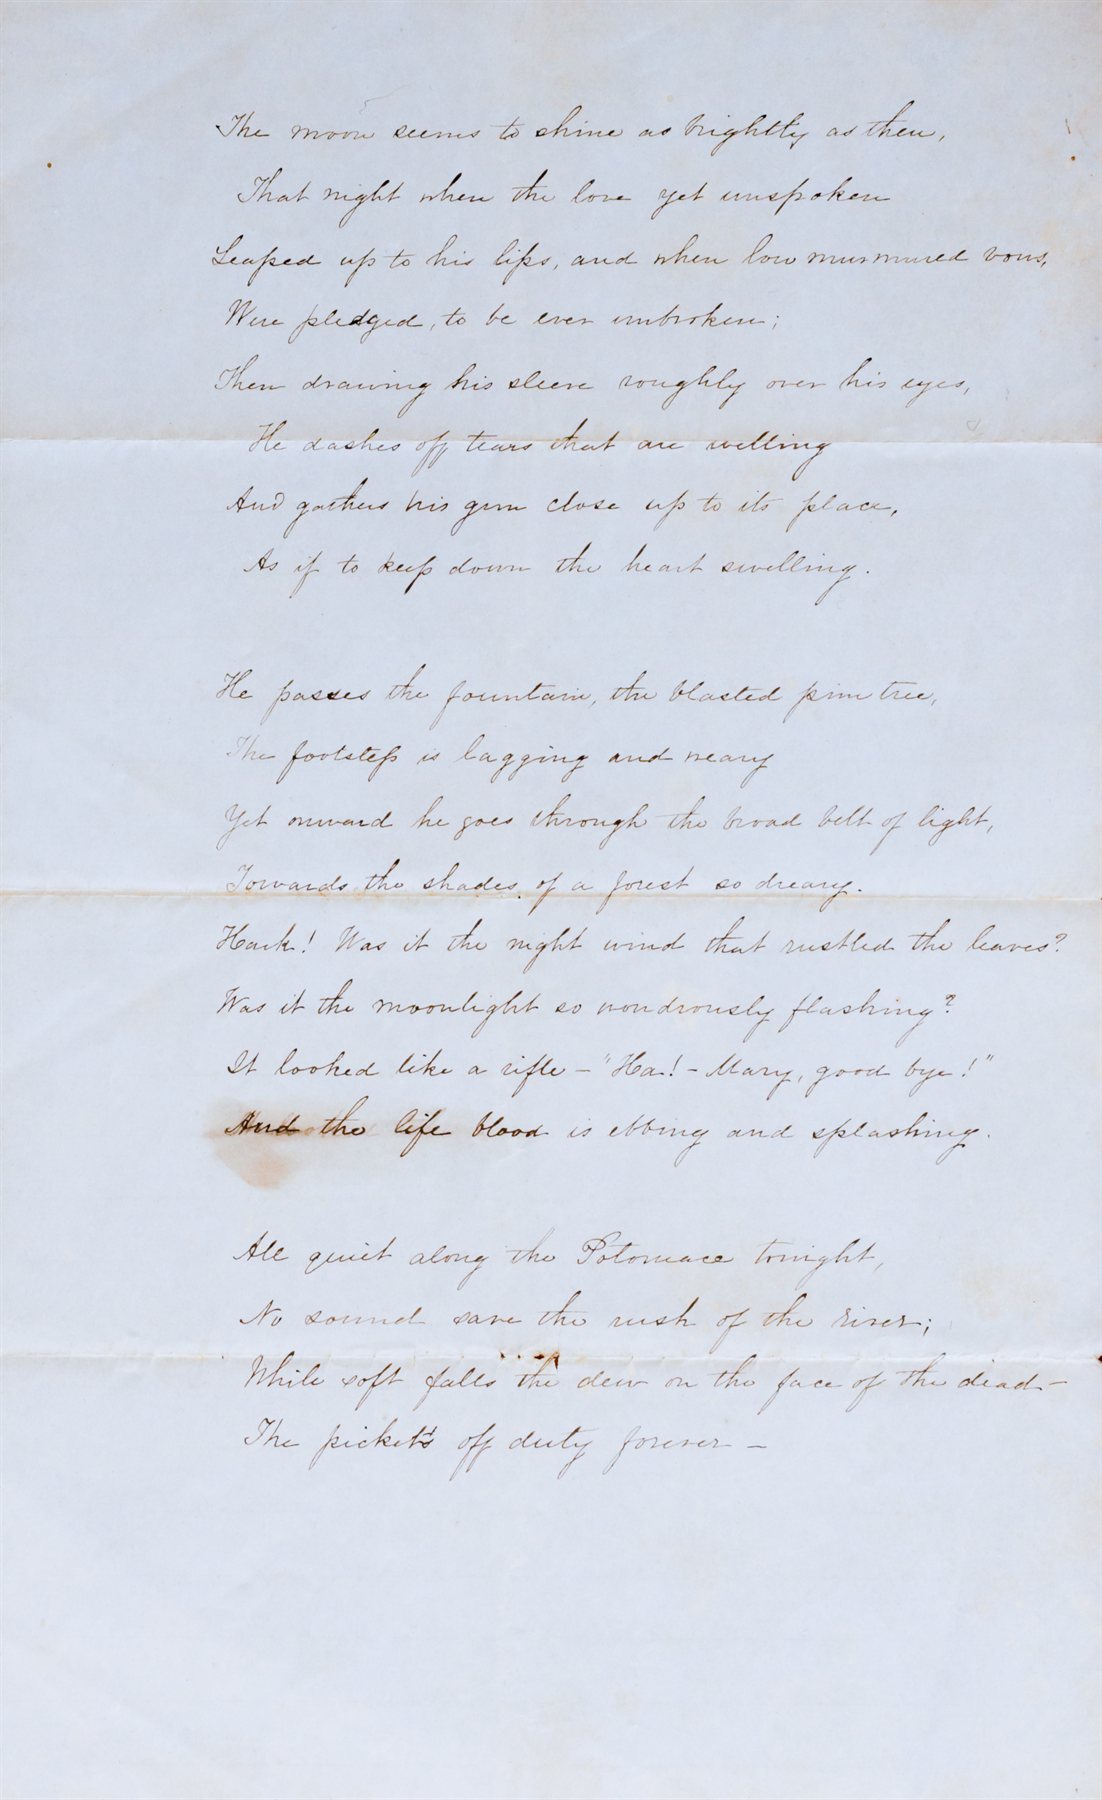 The moon seems to shine as brightly as then,
That night when the love yet unspoken
Leaped up to his lips, and when low murmured vows,
Were pledged, to be ever unbroken;
Then drawing his sleeve roughly over his eyes,
He dashes off tears that are welling
And gathers his gun close up to its place,
As if to keep down the heart swelling.
He passes the fountain, the blasted pine tree,
The footstep is lagging and weary
Yet onward he goes through the broad belt of light,
Towards the shades of a forest so dreary.
Hark! Was it the night wind that rustled the leaves?
Was it the moonlight so wondrously flashing?
It looked like a rifle – "Ha! – Mary, good bye!"
And the life blood is ebbing and splashing.
All quiet along the Potomace tonight,
No sound save the rush of the river;
While soft falls the dew on the face of the dead –
The picket's off duty forever –